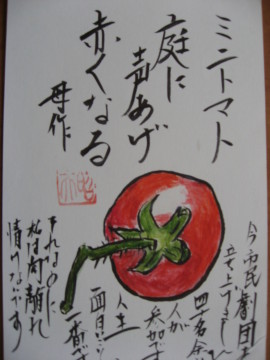 ミニトマト
庭に
声あげ
赤くなる
母作
今市民劇団を
立て上げまし
四十名余
人が
参加
人生
面白
一番で
それなのに
私は肉離れ
情けないです